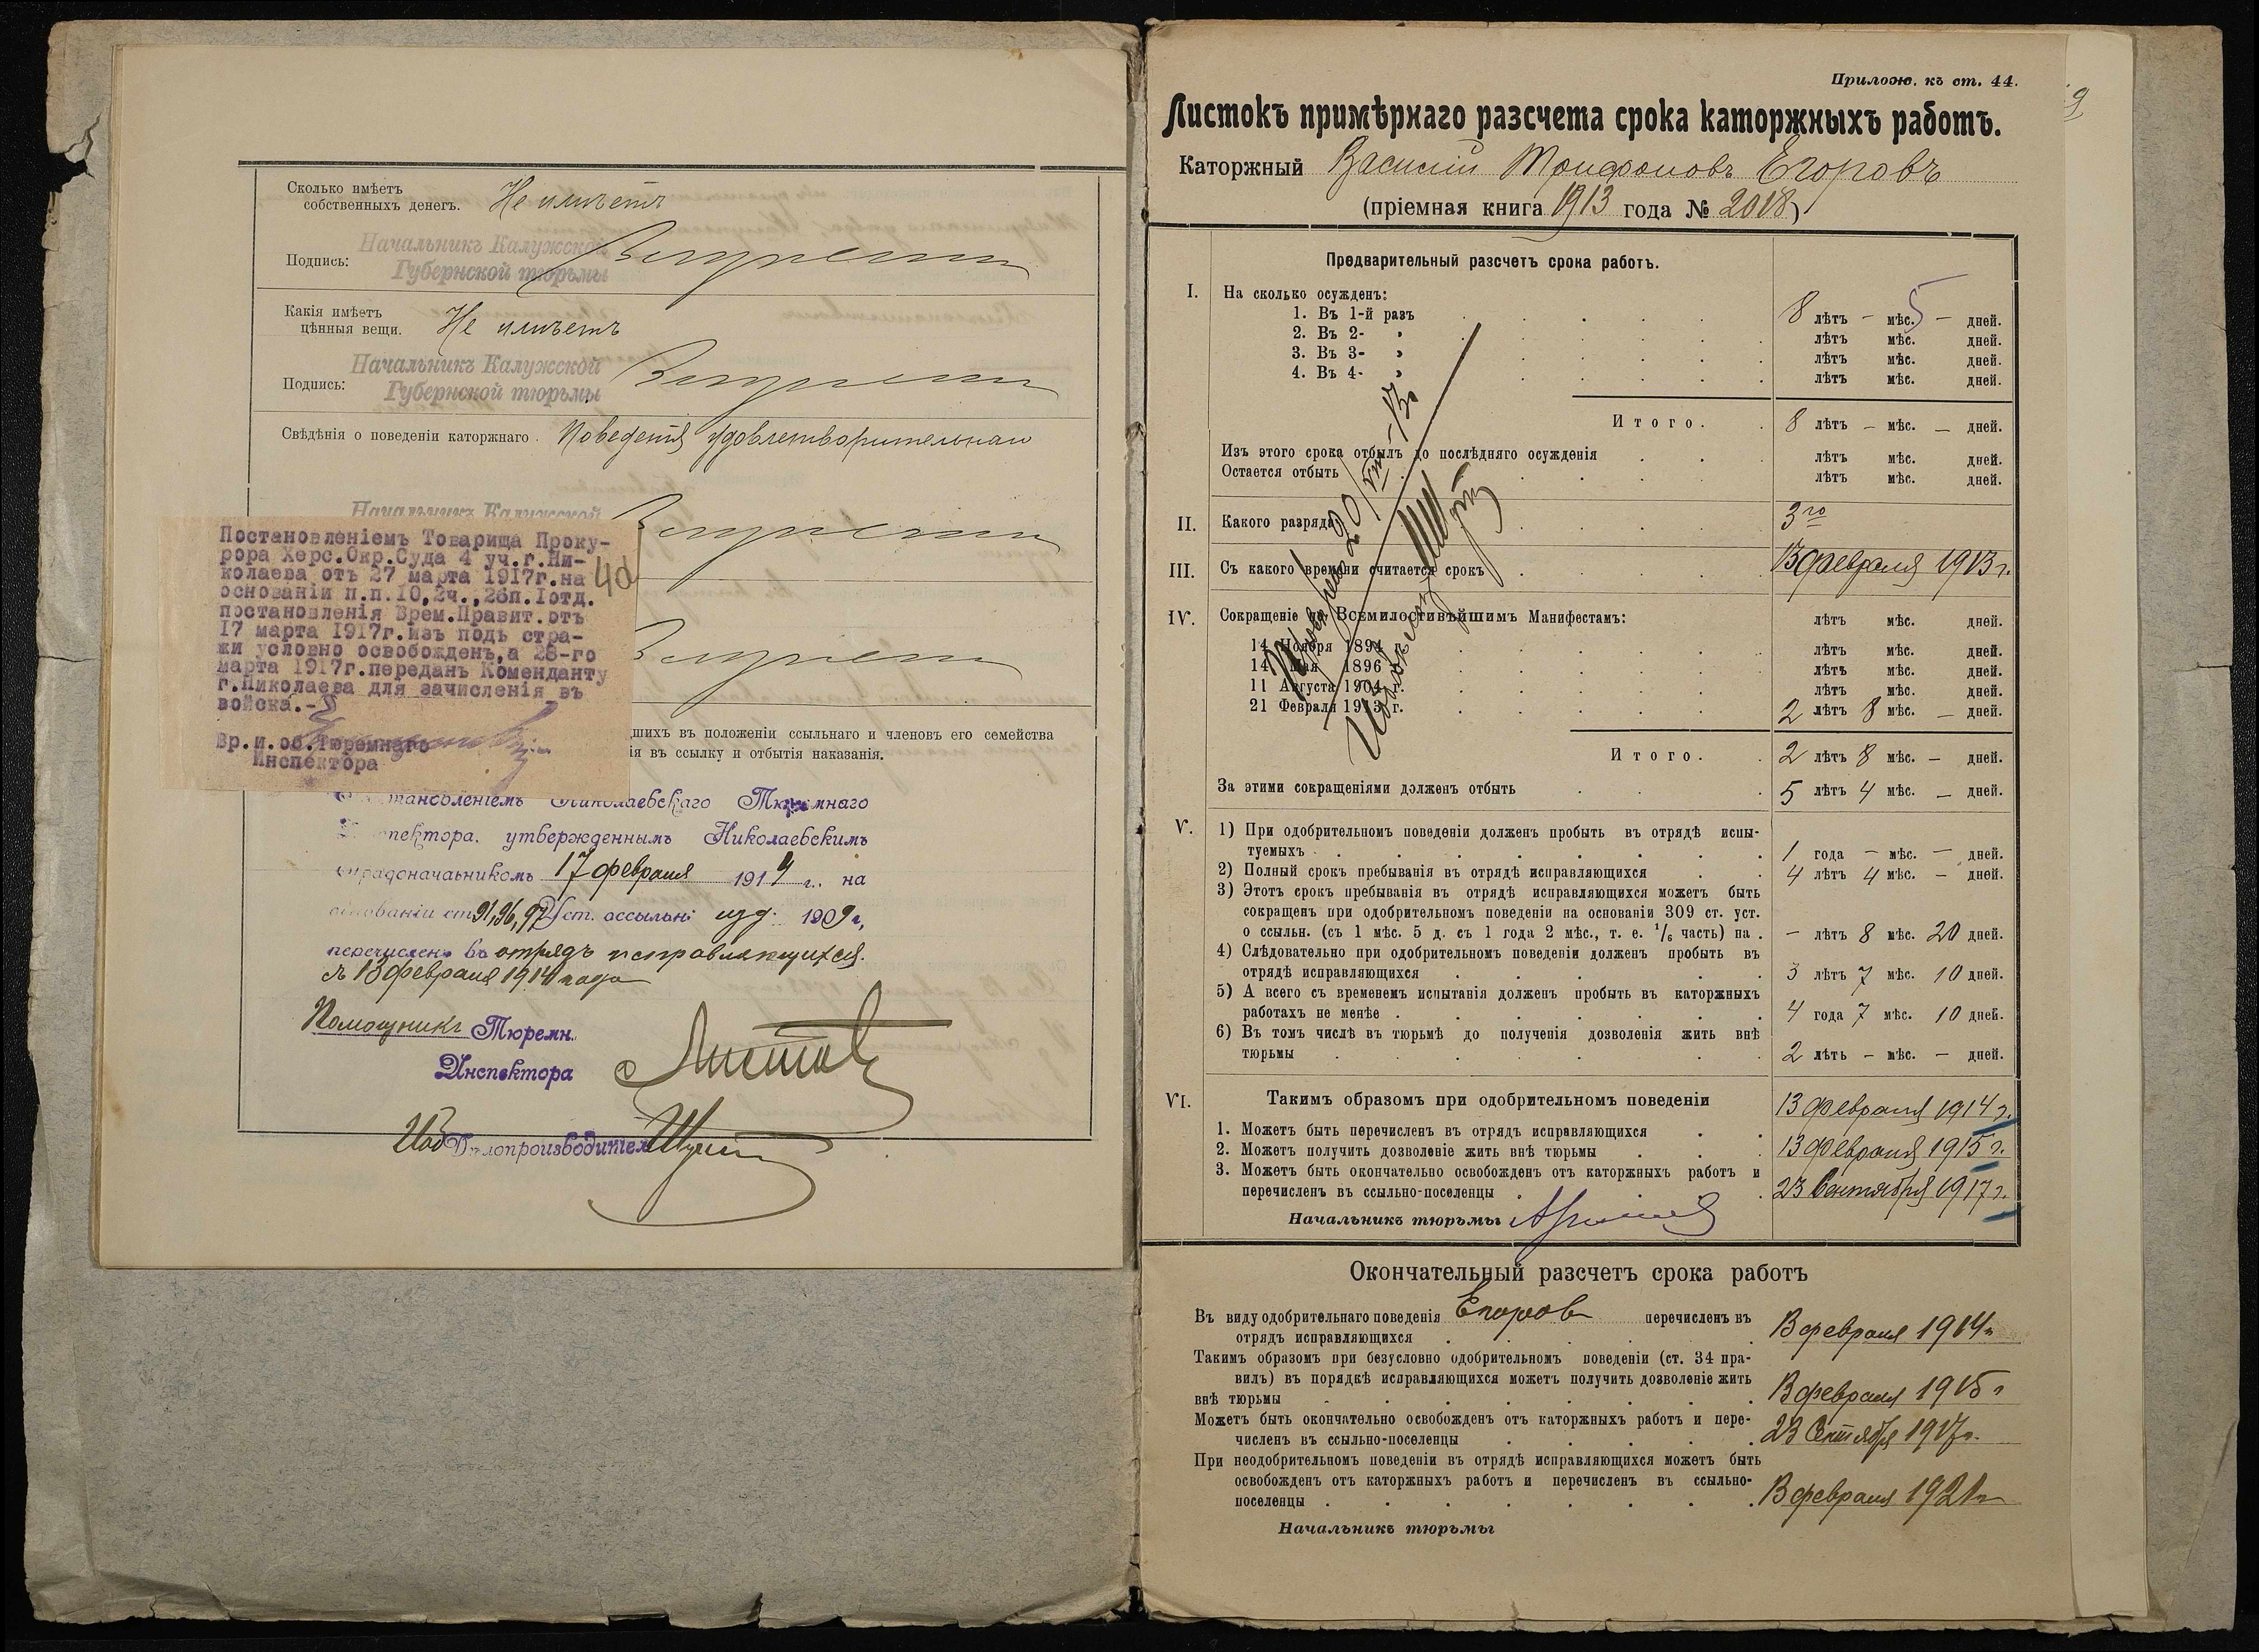 Сколько имѣетъ
собственныхъ денегъ. Не имѣетъ
Начальникъ Калужской
Губернской тюрьмы
Подпись:
Какія имѣетъ
цѣнныя вещи. Не имѣетъ
Начальникъ Калужской
Губернской тюрьмы
Подпись:
Свѣдѣнія о поведеніи каторжнаго.
Начальникъ Калужской
Постановленіемъ Товарища Проку-
рора Херс.Окр.Суда 4 уч.г.Ни-
колаева отъ 27 марта 1917г.на
основаніи п.п.10,2ч.,2бп.Iотд.
постановленія Врем.Правит.отъ
17 марта 1917г.изъ подъ стра-
жи условно освобожденъ,а 28-го
марта 1917г.переданъ Коменданту
г.Николаева для зачисленія въ
войска.-
Вр.и.об.Тюремнаго
Инспектора
40
шихъ въ положеніи ссыльнаго и членовъ его семейства
ія въ ссылку и отбытія наказанія.
тановленіемъ Николаевскаго Тюремнаго
пектора, утвержденнымъ Николаевскимъ
градоначальникомъ 17 февраля 1914 г., на
основаніи ст 91,96,97 Уст. о ссыльн: изд. 1909 г,
перечисленъ въ отрядъ исправляющихся.
съ 13 февраля 1914 года
Помощникъ Тюремн.
Инспектора
Дѣлопроизводител
Прилож. къ ст. 44.
Листокъ примѣрнаго разсчета срока каторжныхъ работъ.
Каторжный Василій Трифоновъ Егоровъ
(пріемная книга 1913 года № 2018)
Предварительный разсчетъ срока работъ.
I. На сколько осужденъ:
1. Въ 1-й разъ 8 лѣтъ — мѣс. — дней.
2. Въ 2- » лѣтъ мѣс. дней.
3. Въ 3- » лѣтъ мѣс. дней.
4. Въ 4- » лѣтъ мѣс. дней.
Итого. 8 лѣтъ — мѣс. — дней.
Изъ этого срока отбылъ до послѣдняго осужденія лѣтъ мѣс. дней.
Остается отбыть лѣтъ мѣс. дней.
II. Какого разряда 3го
III. Съ какого времени считается срокъ 13 февраля 1913 г.
IV. Сокращеніе по Всемилостивѣйшимъ Манифестамъ: лѣтъ мѣс. дней.
14 Ноября 1894 г. лѣтъ мѣс. дней.
14 Мая 1896 лѣтъ мѣс. дней.
11 Августа 1904 г. лѣтъ мѣс. дней.
21 Февраля 1913 г. 2 лѣтъ 8 мѣс. — дней.
Итого. 2 лѣтъ 8 мѣс. — дней.
За этими сокращеніями долженъ отбыть 5 лѣтъ 4 мѣс. — дней.
V. 1) При одобрительномъ поведеніи долженъ пробыть въ отрядѣ испы-
туемыхъ 1 года — мѣс. — дней.
2) Полный срокъ пребыванія въ отрядѣ исправляющихся 4 лѣтъ 4 мѣс. — дней.
3) Этотъ срокъ пребыванія въ отрядѣ исправляющихся можетъ быть
сокращенъ при одобрительномъ поведеніи на основаніи 309 ст. уст.
о ссыльн. (съ 1 мѣс. 5 д. съ 1 года 2 мѣс., т. е. 1/6 часть) на . — лѣтъ 8 мѣс. 20 дней.
4) Слѣдовательно при одобрительномъ поведеніи долженъ пробыть въ
отрядѣ исправляющихся 3 лѣтъ 7 мѣс. 10 дней.
5) А всего съ временемъ испытанія долженъ пробыть въ каторжныхъ
работахъ не менѣе 4 года 7 мѣс. 10 дней.
6) Въ томъ числѣ въ тюрьмѣ до полученія дозволенія жить внѣ
тюрьмы 2 лѣтъ — мѣс. — дней.
VI. Такимъ образомъ при одобрительномъ поведеніи
1. Можетъ быть перечисленъ въ отрядъ исправляющихся 13 февраля 1914 г.
2. Можетъ получить дозволеніе жить внѣ тюрьмы 13 февраля 1915 г.
3. Можетъ быть окончательно освобожденъ отъ каторжныхъ работъ и
перечисленъ въ ссыльно-поселенцы 23 Сентября 1917 г.
Начальникъ тюрьмы
Окончательный разсчетъ срока работъ
Въ виду одобрительнаго поведенія Егоров перечисленъ въ
отрядъ исправляющихся 13 февраля 1914 г
Такимъ образомъ при безусловно одобрительномъ поведеніи (ст. 34 пра-
вилъ) въ порядкѣ исправляющихся можетъ получить дозволеніе жить
внѣ тюрьмы 13 февраля 1915 г
Можетъ быть окончательно освобожденъ отъ каторжныхъ работъ и пере-
численъ въ ссыльно-поселенцы 23 Сентября 1917 г.
При неодобрительномъ поведеніи въ отрядѣ исправляющихся можетъ быть
освобожденъ отъ каторжныхъ работъ и перечисленъ въ ссыльно-
поселенцы 13 февраля 1921 г
Начальникъ тюрьмы